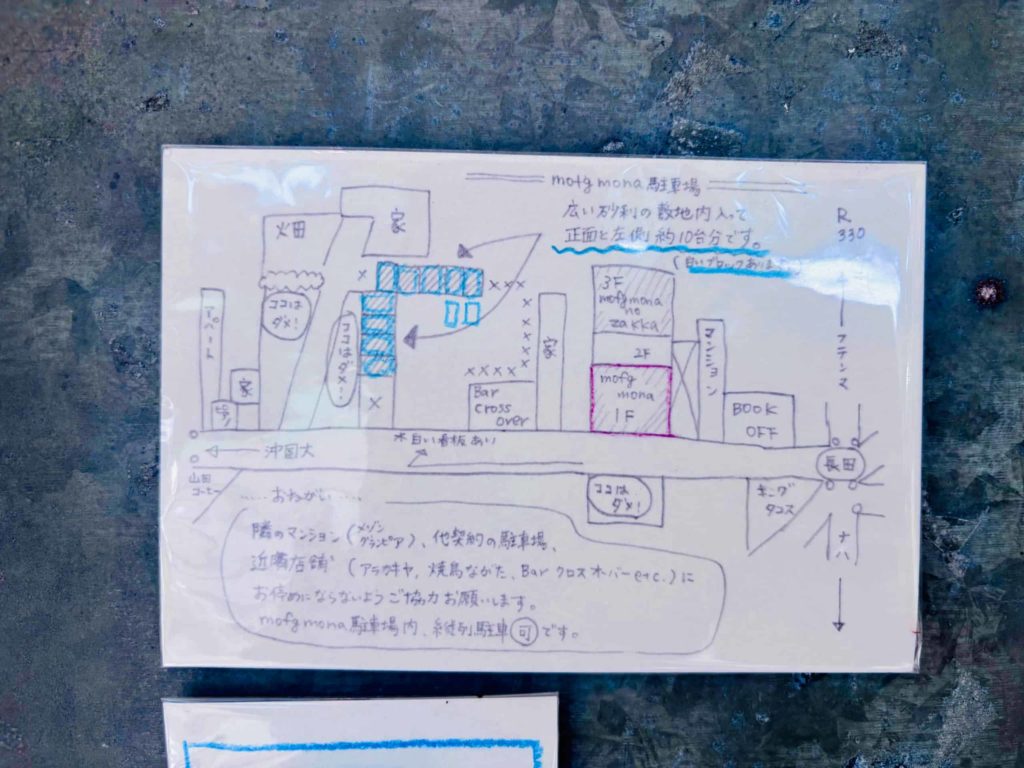 mofgmona駐車場
広い砂利の敷地内入って
正面と左側約10台分です。
R.
330
畑
家
3F
mofgmona
no
zakka
2F
mofg
mona
1F
ココは
ダメ!
ココはダメ!
アパート
家
家
Bar
Cross
over
マンション
BOOK
OFF
フテンマ
白い看板あり
沖国大
長田
山田
コーヒー
ココは
ダメ!
キング
タコス
ナハ
.....おねがい.....
隣のマンション(メゾングランピア)、他契約の駐車場、
近隣店舗(アラカキヤ,焼鳥ながた、Bar クロスオーバーetc.)に
お停めにならないようご協力お願いします。
mofgmona駐車場内、縦列駐車可です。